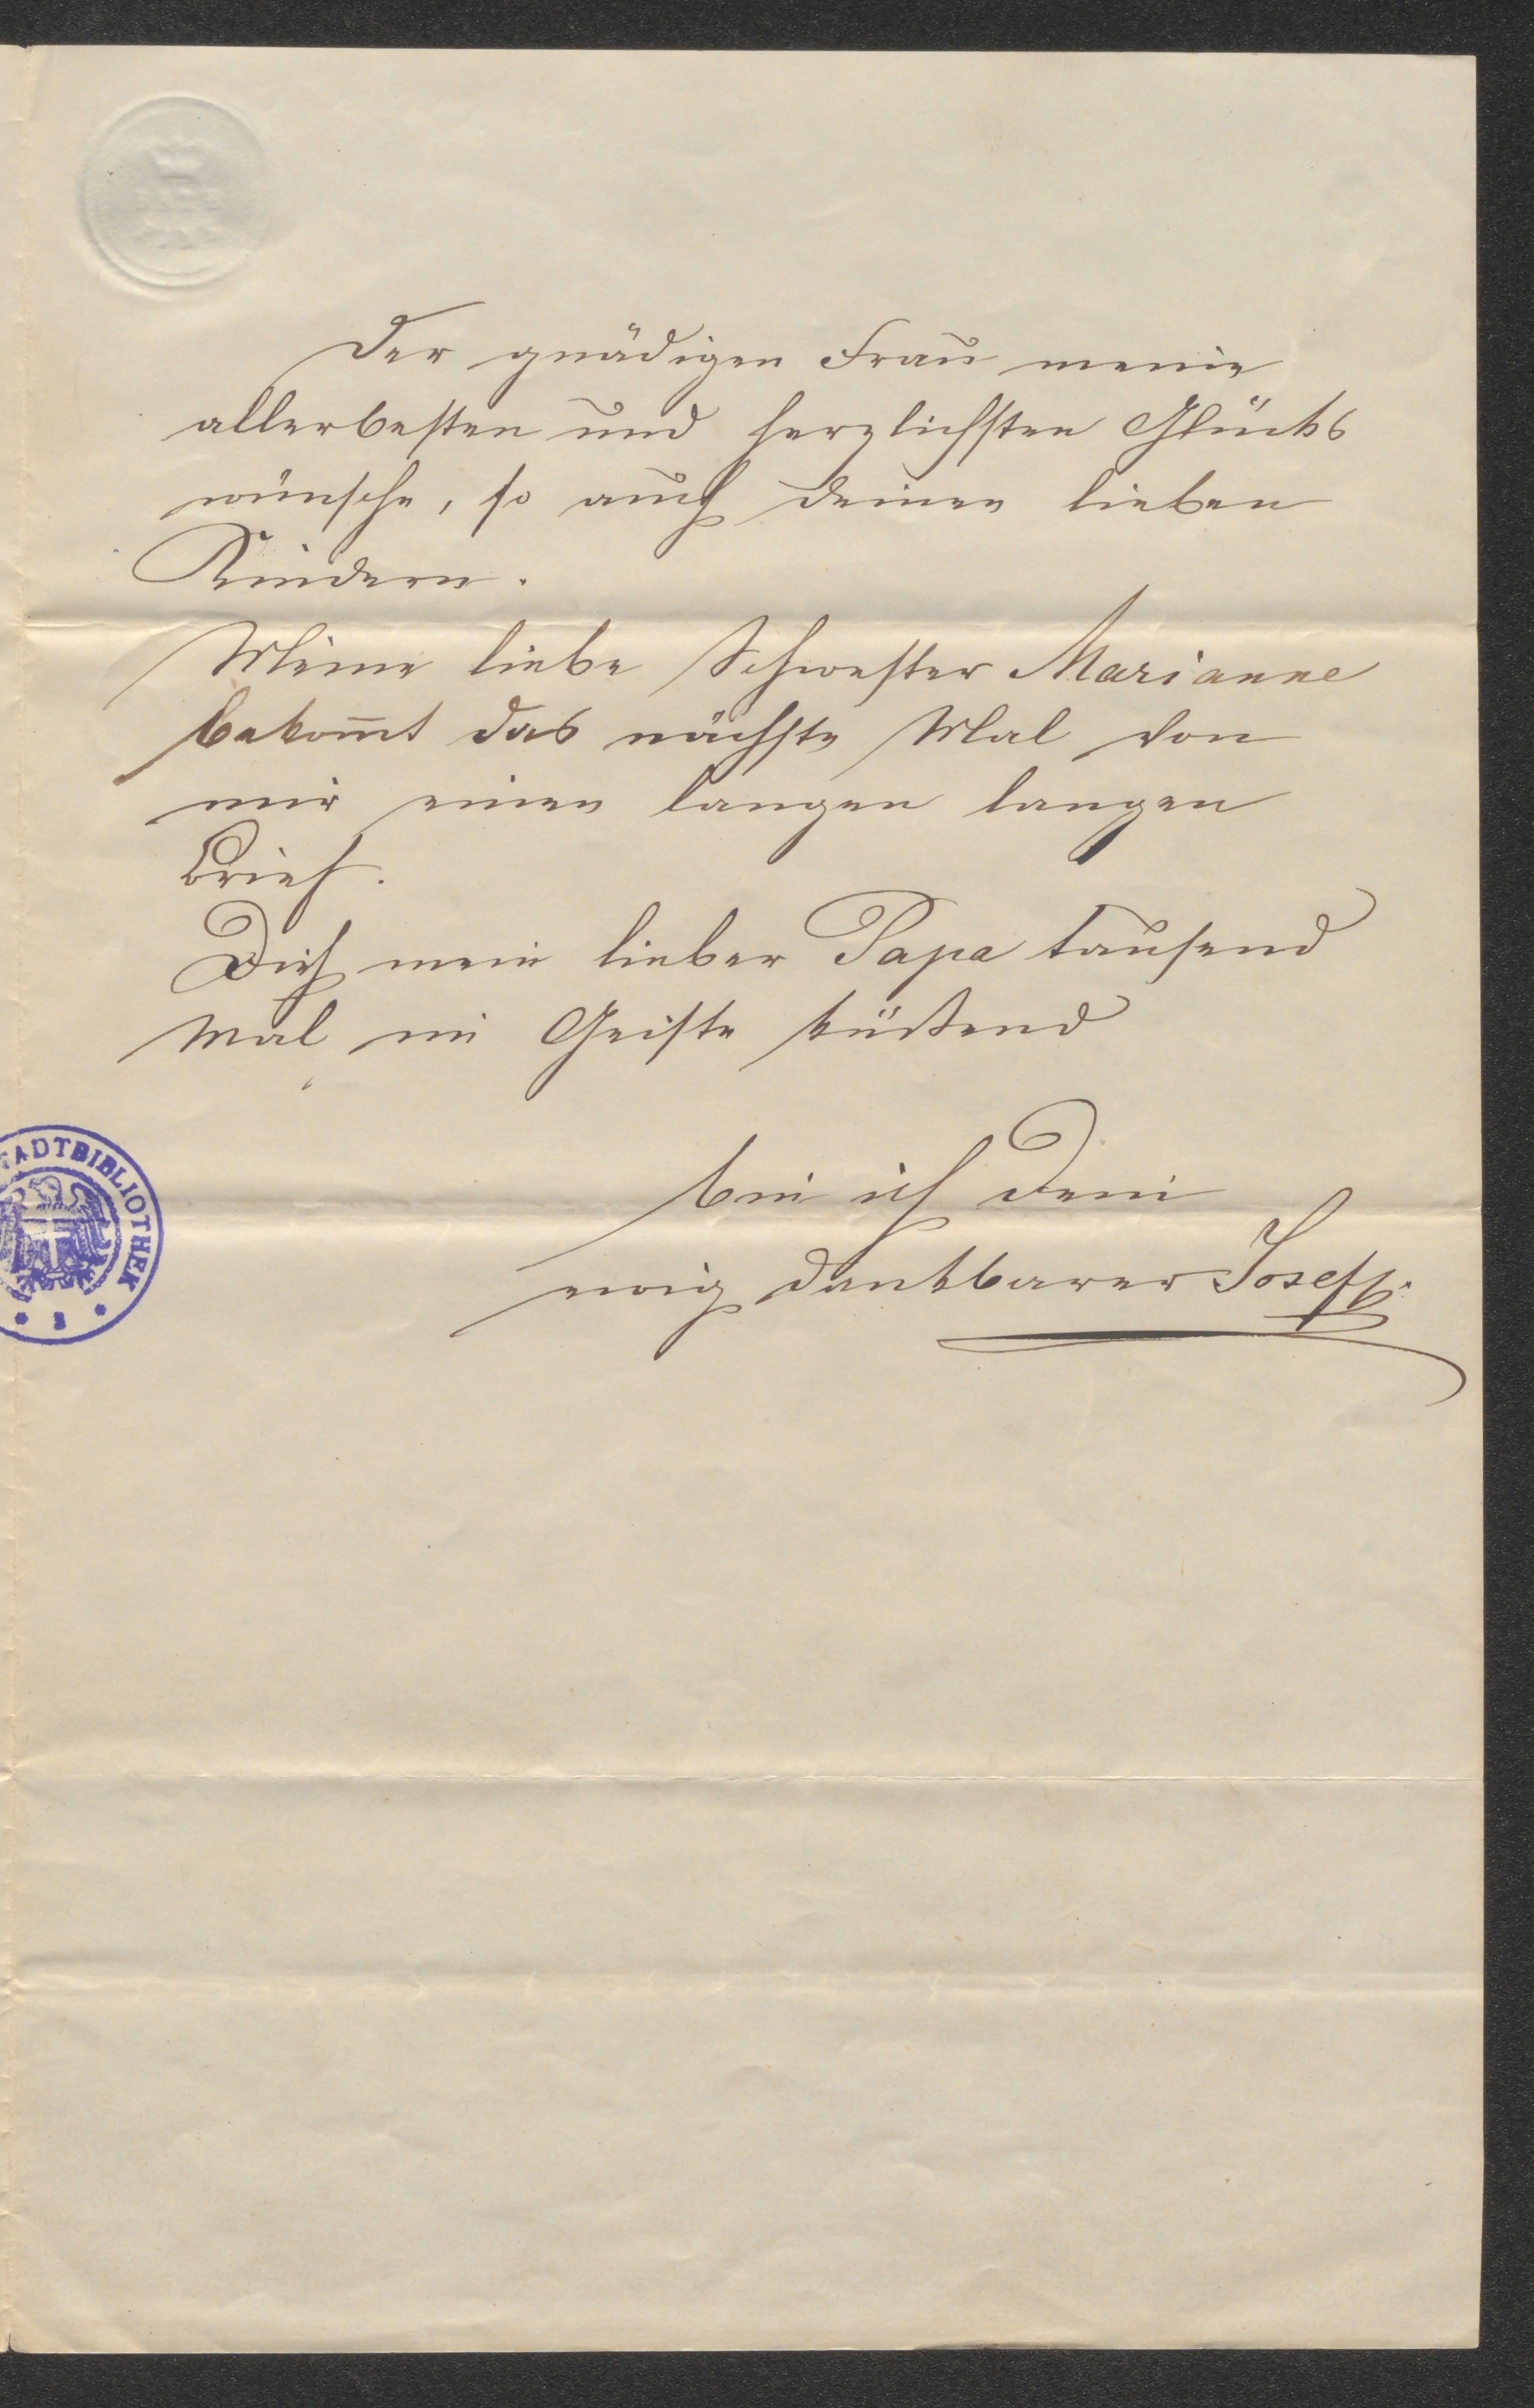 Der gnädigen Frau meine
allerbesten und herzlichsten Glücks
wünsche, so auch deinen lieben
Kindern.
Meine liebe Schwester Marianne
bekom̅t das nächste Mal von
mir einen langen langen
Brief.
Dich mein lieber Papa tausend
Mal im Geiste küßend
bin ich Dein
ewig dankbarer Josef.
TADTBIBLIOTHEK